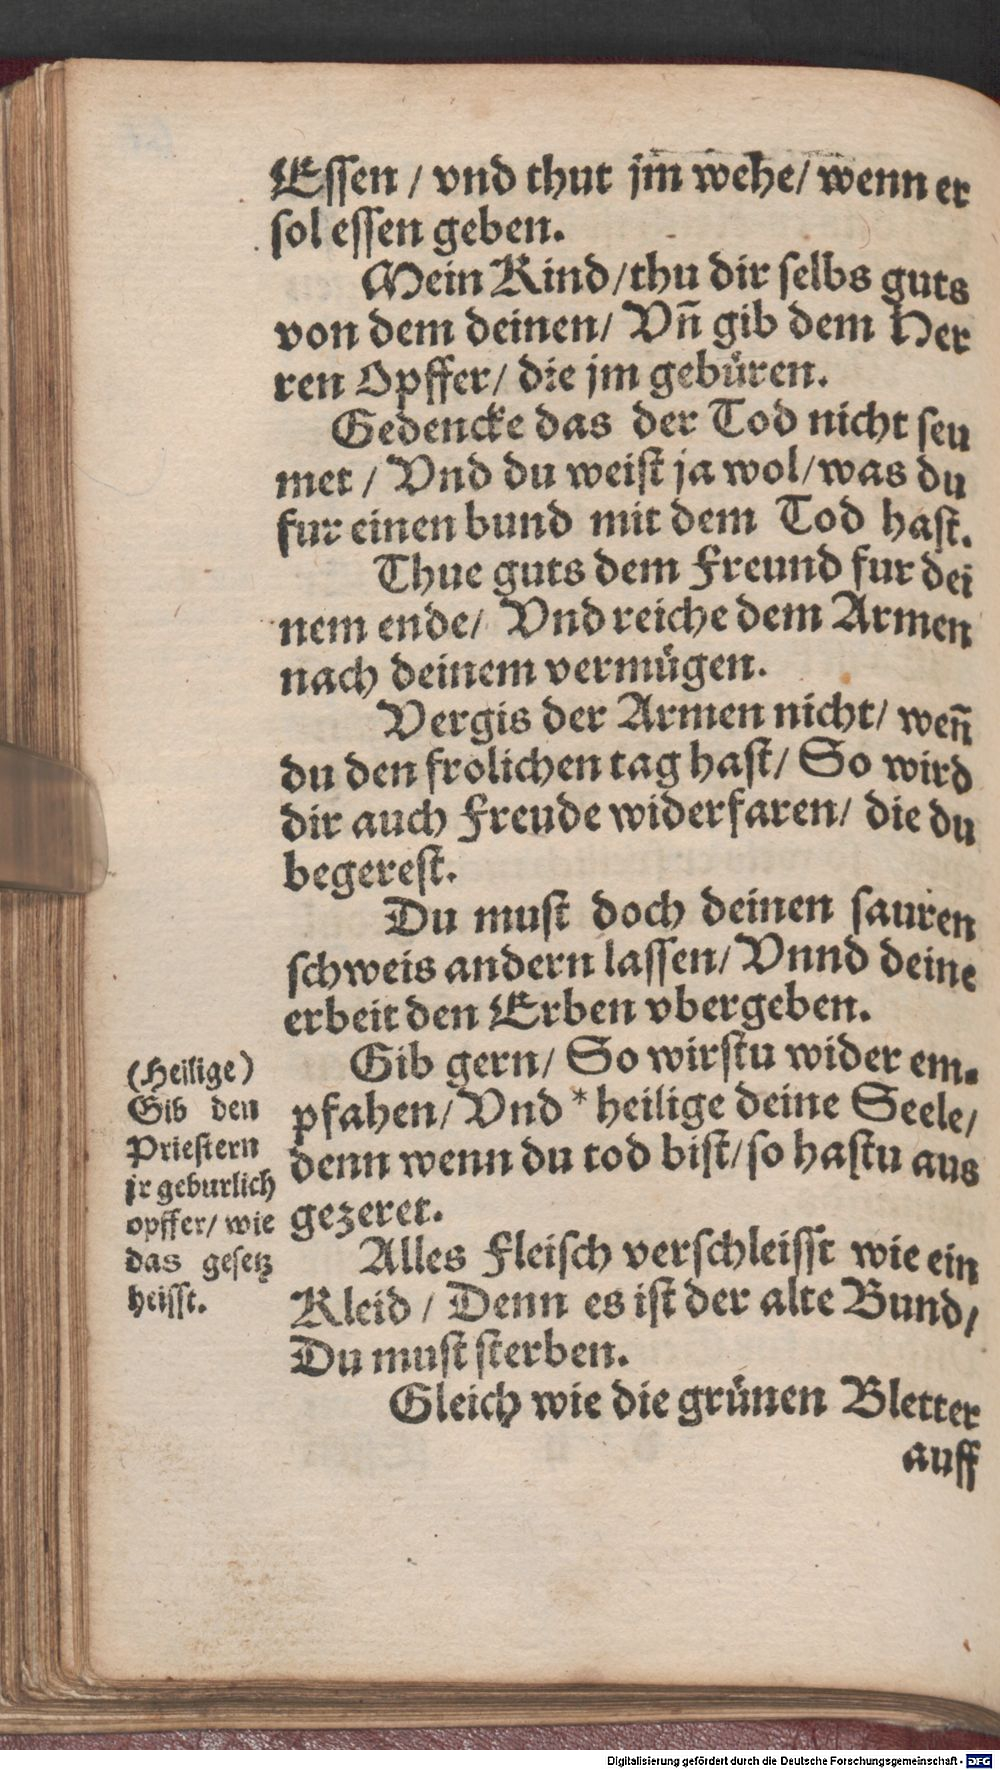 Eſſen / vnd thut jm wehe / wenn er
ſol eſſen geben.
Mein Kind / thu dir ſelbs guts
von dem deinen / Vñ gib dem Her
ren Opffer / die jm gebuͤren.
Gedencke das der Tod nicht ſeu
met / Vnd du weiſt ja wol / was du
fur einen bund mit dem Tod haſt.
Thue guts dem Freund fur dei
nem ende / Vnd reiche dem Armen
nach deinem vermuͤgen.
Vergis der Armen nicht / weñ
du den frolichen tag haſt / So wird
dir auch Freude widerfaren / die du
begereſt.
Du muſt doch deinen ſauren
ſchweis andern laſſen / Vnnd deine
erbeit den Erben vbergeben.
Gib gern / So wirſtu wider em-
pfahen / Vnd * heilige deine Seele /
denn wenn du tod biſt / ſo haſtu aus
gezeret.
Alles Fleiſch verſchleiſſt wie ein
Kleid / Denn es iſt der alte Bund /
Du muſt ſterben.
Gleich wie die gruͤnen Bletter
auff
(Heilige)
Gib den
Prieſtern
jr geburlich
opffer / wie
das geſetz
heiſſt.
Digitalisierung gefördert durch die Deutsche Forschungsgemeinschaft - DFG